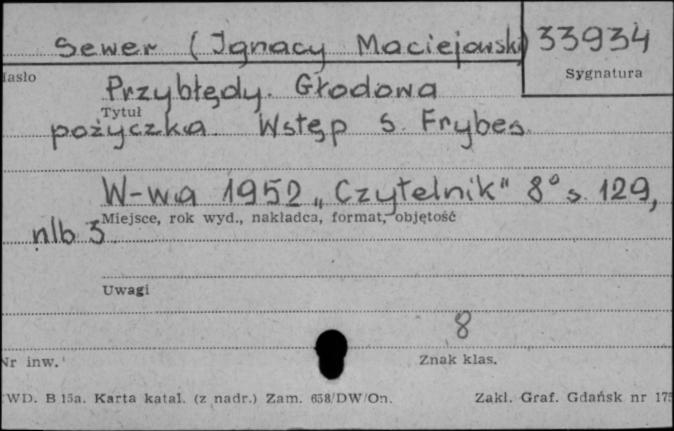 Sewer (Ignacy Maciejowski) 33934
Sygnatura
Przybłędy. Głodowa
Tytuł
pożyczka. Wstęp S. Frybes.
W-wa 1952 „Czytelnik" 8° s. 129,
Miejsce, rok wyd., nakładca, format, objętość
nlb 3.
Uwagi
8
Nr inw. Znak klas.
WD. B 15a. Karta katal. (z nadr.) Zam. 658/DW/On. Zakł. Graf. Gdańsk nr